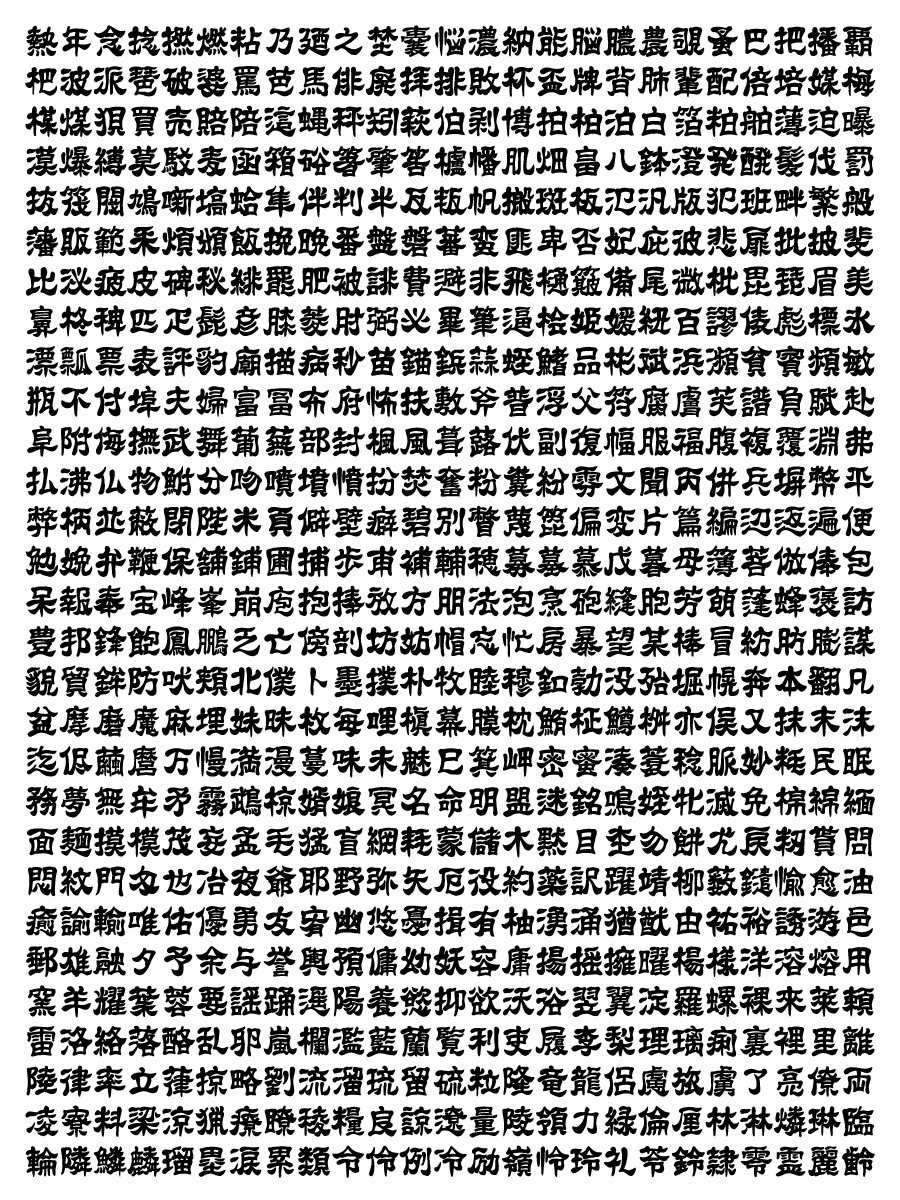 熱年念捻撚燃粘乃廼之埜嚢悩濃納能脳膿農覗蚤巴把播覇
杷波派琶破婆罵芭馬俳廃拝排敗杯盃牌背肺輩配倍培媒梅
楳煤狽買売賠陪這蝿秤矧萩伯剥博拍柏泊白箔粕舶薄迫曝
漠爆縛莫駁麦函箱硲箸肇筈櫨幡肌畑畠八鉢溌発醗髪伐罰
抜筏閥鳩噺塙蛤隼伴判半反叛帆搬斑板氾汎版犯班畔繁般
藩販範釆煩頒飯挽晩番盤磐蕃蛮匪卑否妃庇彼悲扉批披斐
比泌疲皮碑秘緋罷肥被誹費避非飛樋簸備尾微枇毘琵眉美
鼻柊稗匹疋髭彦膝菱肘弼必畢筆逼桧姫媛紐百謬俵彪標氷
漂瓢票表評豹廟描病秒苗錨鋲蒜蛭鰭品彬斌浜瀕貧賓頻敏
瓶不付埠夫婦富冨布府怖扶敷斧普浮父符腐膚芙譜負賦赴
阜附侮撫武舞葡蕪部封楓風葺蕗伏副復幅服福腹複覆淵弗
払沸仏物鮒分吻噴墳憤扮焚奮粉糞紛雰文聞丙併兵塀幣平
弊柄並蔽閉陛米頁僻壁癖碧別瞥蔑箆偏変片篇編辺返遍便
勉娩弁鞭保舗鋪圃捕歩甫補輔穂募墓慕戊暮母簿菩倣俸包
呆報奉宝峰峯崩庖抱捧放方朋法泡烹砲縫胞芳萌蓬蜂褒訪
豊邦鋒飽鳳鵬乏亡傍剖坊妨帽忘忙房暴望某棒冒紡肪膨謀
貌貿鉾防吠頬北僕卜墨撲朴牧睦穆釦勃没殆堀幌奔本翻凡
盆摩磨魔麻埋妹昧枚毎哩槙幕膜枕鮪柾鱒桝亦俣又抹末沫
迄侭繭麿万慢満漫蔓味未魅巳箕岬密蜜湊蓑稔脈妙粍民眠
務夢無牟矛霧鵡椋婿娘冥名命明盟迷銘鳴姪牝滅免棉綿緬
面麺摸模茂妄孟毛猛盲網耗蒙儲木黙目杢勿餅尤戻籾貰問
悶紋門匁也冶夜爺耶野弥矢厄役約薬訳躍靖柳薮鑓愉愈油
癒諭輸唯佑優勇友宥幽悠憂揖有柚湧涌猶猷由祐裕誘遊邑
郵雄融夕予余与誉輿預傭幼妖容庸揚揺擁曜楊様洋溶熔用
窯羊耀葉蓉要謡踊遥陽養慾抑欲沃浴翌翼淀羅螺裸来莱頼
雷洛絡落酪乱卵嵐欄濫藍蘭覧利吏履李梨理璃痢裏裡里離
陸律率立葎掠略劉流溜琉留硫粒隆竜龍侶慮旅虜了亮僚両
凌寮料梁涼猟療瞭稜糧良諒遼量陵領力緑倫厘林淋燐琳臨
輪隣鱗麟瑠塁涙累類令伶例冷励嶺怜玲礼苓鈴隷零霊麗齢